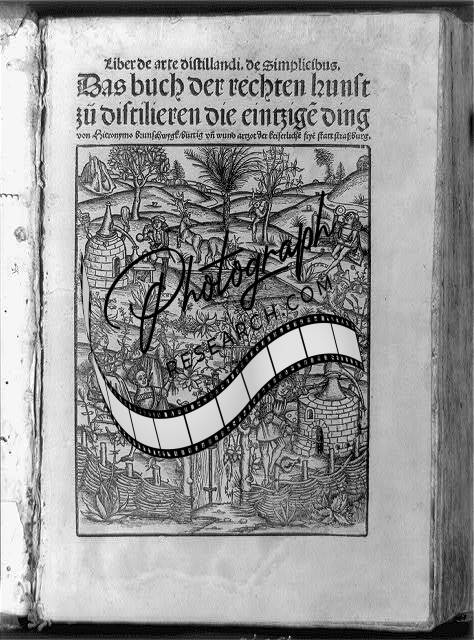 Liber de arte distillandi. de Simplicibus.
Das buch der rechten kunst
zů distilieren die eintzigē ding
von Hieronymo Brunschwygk/bürtig vñ wund artzot der keiserlichē fryē statt straßburg.
Photograph
RESEARCH.COM